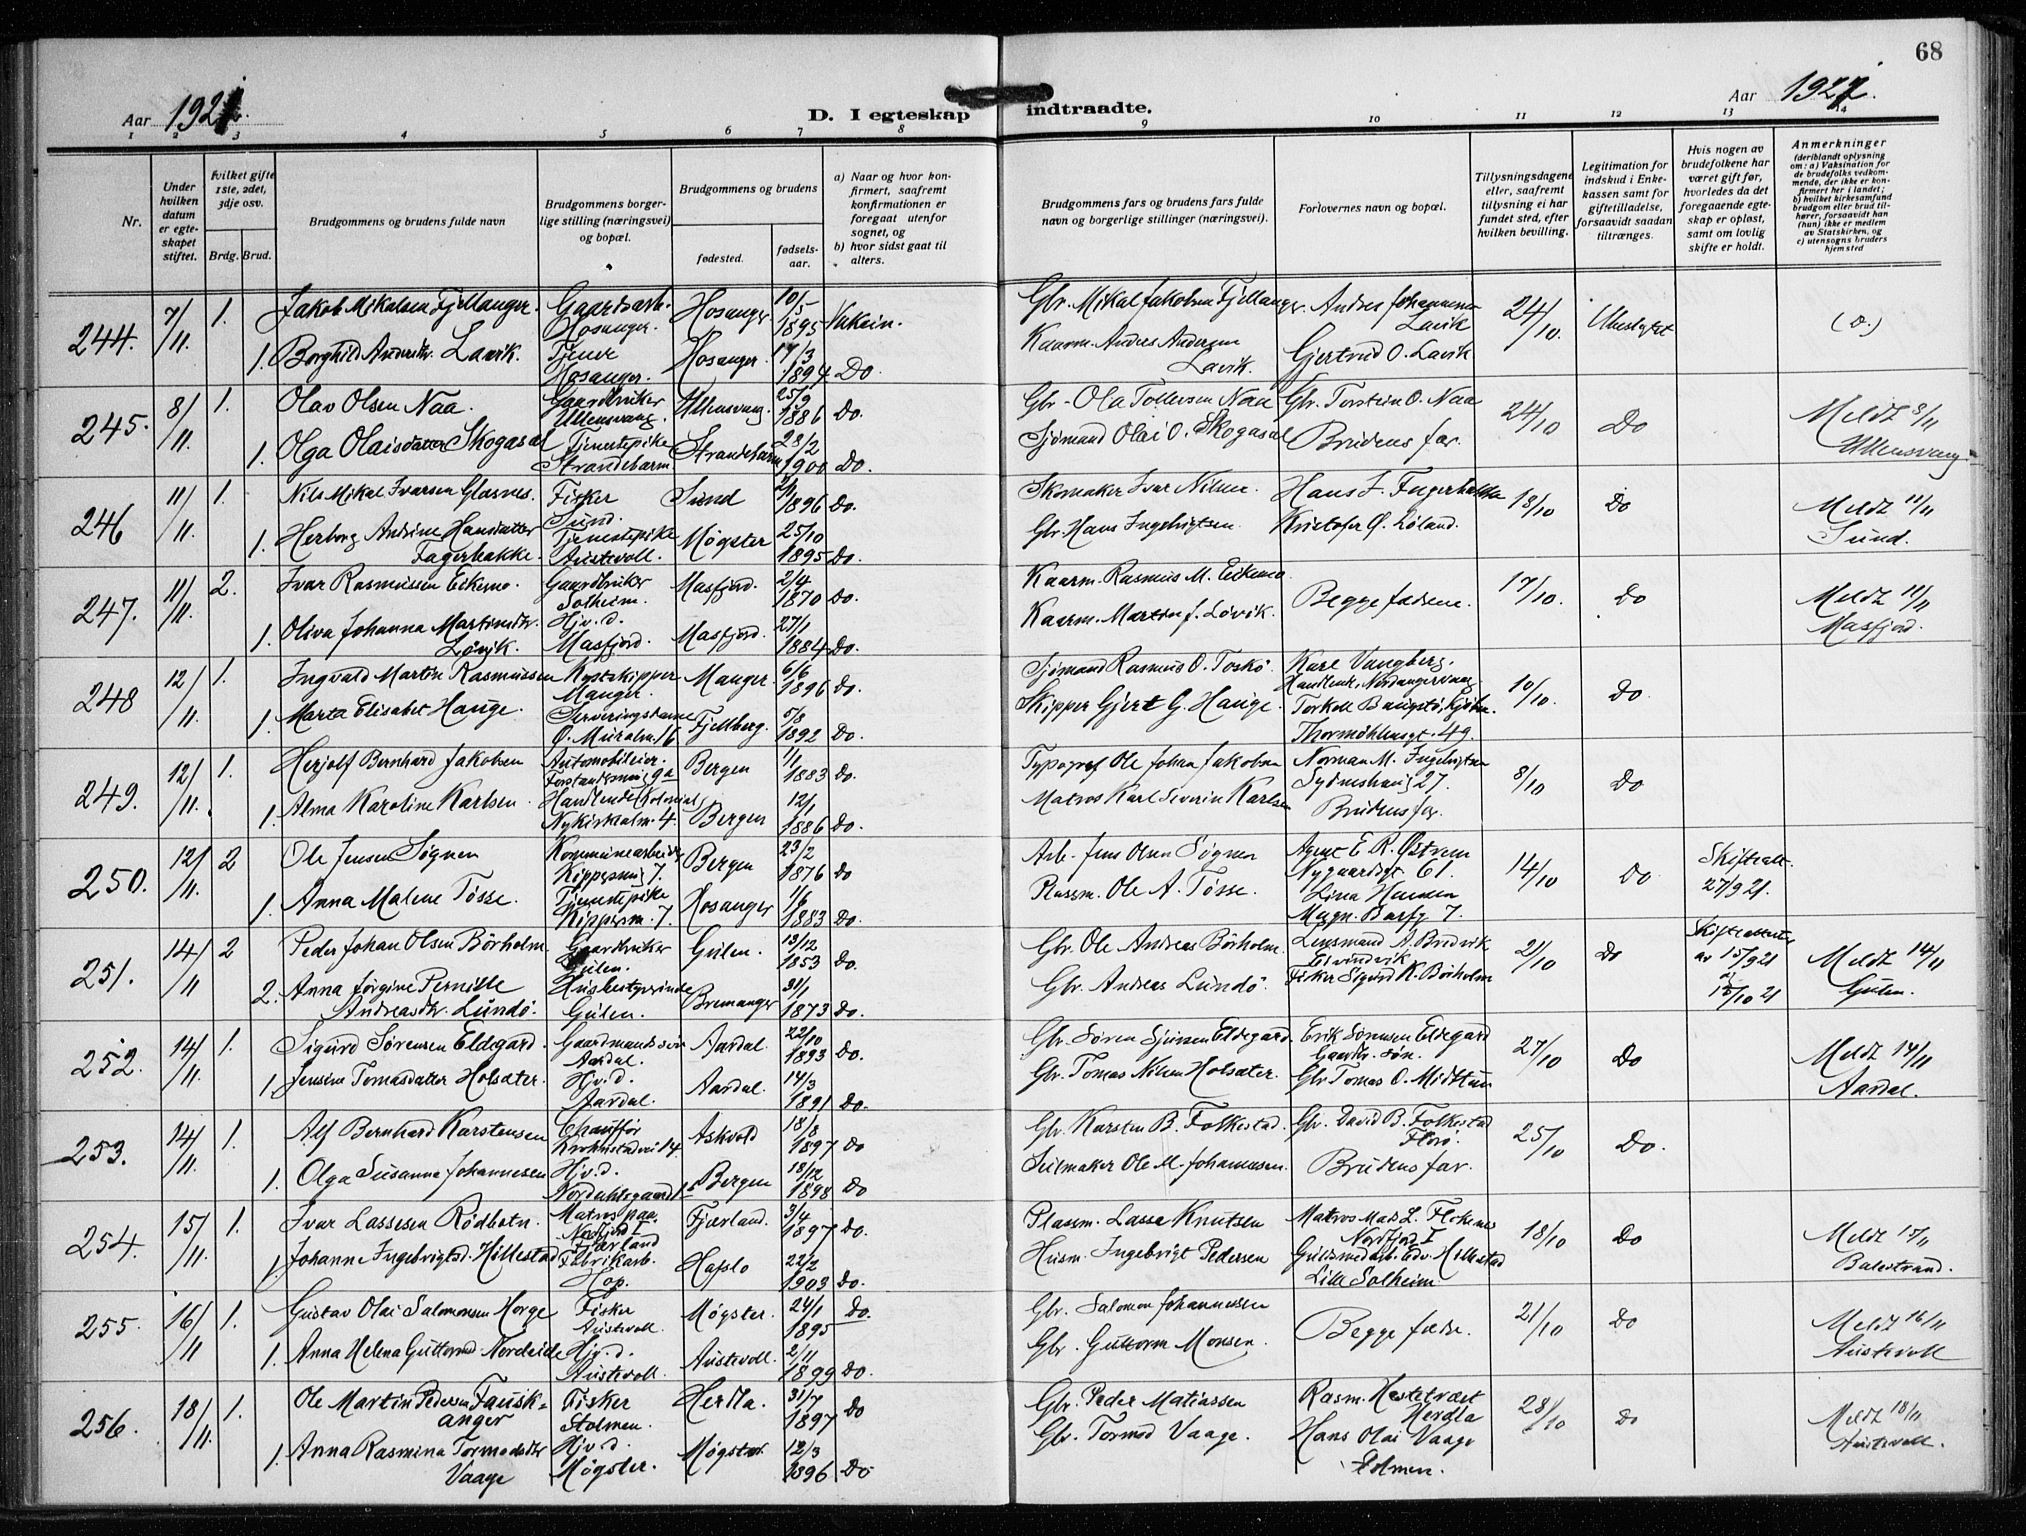 68
Aar 1921.
D. I egteskap indtraadte.
Aar 1921.
1 2 3 4 5 6 7 8 9 10 11 12 13 14
Nr.
Under hvilken datum er egteskapet stiftet.
Hvilket gifte 1ste, 2det, 3dje osv.
Brdg. Brud.
Brudgommens og brudens fulde navn
Brudgommens borgerlige stilling (næringsvei) og bopæl.
Brudgommens og brudens
fødested.
fødselsaar.
a) Naar og hvor konfirmert, saafremt konfirmationen er foregaat utenfor sognet, og
b) hvor sidst gaat til alters.
Brudgommens fars og brudens fars fulde navn og borgerlige stillinger (næringsvei).
Forlovernes navn og bopæl.
Tillysningsdagene eller, saafremt tillysning ei har fundet sted, efter hvilken bevilling.
Legitimation for indskud i Enkekassen samt for giftetilladelse, forsaavidt saadan tiltrænges.
Hvis nogen av brudefolkene har været gift før, hvorledes da det foregaaende egteskap er opløst, samt om lovlig skifte er holdt.
Anmerkninger
(deriblandt oplysning om: a) Vaksination for de brudefolks vedkommende, der ikke er konfirmert her i landet; b) hvilket kirkesamfund brudgom eller brud tilhører, forsaavidt han (hun) ikke er medlem av Statskirken, og c) utensogns bruders hjemsted
244. 7/11. 1. Jakob Mikalsen Fjellanger. Gaardsarb. Hosanger. Hosanger 10/5 1895 Gbr. Mikal Jakobsen Fjellanger. Andres Johannessen Lavik 24/10. (D.)
1. Borghild Andersdtr. Lavik. Tjener Hosanger. Hosanger. 17/3 1894 Do. Kaarm. Anders Andersen Lavik. Gjertrud O. Lavik
245. 8/11. 1. Olav Olsen Naa. Gaardbruker Ullensvang. Ullensvang. 25/9 1886 Do. Gbr. Ola Tollefsen Naa Gbr. Torstein O. Naa 24/10 Do Meldt 8/11 Ullensvang.
1. Olga Olaisdatter Skogasal Tjenestepike Strandebarm. Strandebarm 28/2 1900 Do. Sjömand Olai O. Skogasal Brudens far.
246 11/11. 1. Nils Mikal Ivarsen Glasnes. Fisker Sund. Sund 1896 Do. Skomaker Ivar Nilsen. Hans J. Fagerbakke 18/10 Do Meldt 11/11 Sund.
1. Herborg Andrine Hansdatter Fagerbakke. Tjenestepike Austevoll. Møgster 25/10 1895 Do. Gbr. Hans Ingebrigtsen. Kristofer Ø. Løland.
247. 11/11. 2. Ivar Rasmussen Eikemo. Gaardbruker Solheim. Masfjord. 2/4 1870 Do. Kaarm. Rasmus M. Eikemo. Begge fædrene. 17/10. Do Meldt 11/11 Masfjord.
1. Oliva Johanna Martinsdtr. Løvik. Hjv.d. Masfjord. Masfjord. 27/1 1884 Do. Kaarm. Martin J. Løvik.
248 12/11. 1. Ingvald Martin Rasmussen Kystskipper Manger. Manger. 6/6 1896 Do. Sjömand Rasmus O. Toskö. Karl Vangberg. 10/10. Do.
1. Marta Elisabet Hauge. Serveringsdame Ø. Muralm. 16 Fjellberg. 5/8 1892 Do. Skipper Gjert G. Hauge. Thormöhlensgt. 49.
249. 12/11. 1. Herjolf Bernhard Jakobsen Automobileier. Forstandersmug 9a Bergen 1/1 1883 Do. Typograf Ole Johan Jakobsen Norman M. Ingebrigtsen Sydneshaug 27. 8/10 Do
1. Alma Karoline Karlsen. Handlende Kolonial, Nykirkealm. 4. Bergen 12/1 1886 Do. Matros Karl Severin Karlsen Brudens far.
250. 12/11. 2 Ole Jensen Søgnen Kommunearbeider Kippersmug 7. Bergen 23/2 1876 Do Arb. Jens Olsen Søgnen Agent E. R. Østrem Nygaardsgt 61. 14/10 Do Skifteatt. 27/9 21.
1. Anna Malene Tösse. Tjenestepike Kipperm. 7. Hosanger 1/6 1883 Do. Plassm. Ole A. Tösse. Lina Hansen Magn. Barfg 7.
251. 14/11 2 Peder Johan Olsen Børholm. Gaardbruker Gulen. Gulen. 13/12 1853 Do. Gbr. Ole Andreas Børholm. Lensmand A. Bredvik Eivindvik 21/10 Do Skifteattester av 15/9 21 Meldt 14/11 Gulen.
2. Anna Jørgine Pernille Andreasdtr. Lundö. Husbestyrerinde Gulen. Bremanger 31/1 1873 Do. Gbr. Andreas Lundö. Fisker Sigurd K. Børholm 15/10 21
252. 14/11. 1. Sigurd Sørensen Eldegard. Gaardmandssön Aardal. Aardal. 22/10 1893 Do. Gbr. Søren Sjursen Eldegard. Erik Sørensen Eldegard Gaardbr. søn. 27/10 Do Meldt 14/11 Aardal.
1. Jensine Tomasdatter Holsæter. Hjv.d. Aardal. Aardal. 14/3 1891 Do. Gbr. Tomas Nilsen Holsæter. Gbr Tomas O. Midttun
253. 14/11. 1. Alf Bernhard Karstensen Chauffør Krohnstadvei 14. Askvold 18/8 1897 Do Gbr. Karsten B. Folkestad. Gbr. David B. Folkestad Florö. 25/10 Do.
1. Olga Susanna Johannesen Hjv.d. Bergen 18/12 1898 Do Seilmaker Ole M. Johannesen. Brudens far.
254. 15/11. 1. Ivar Lassesen Rödbotn. Matros paa Nordfjord I Fjærland Fjærland. 3/4 1897 Do. Plassm. Lasse Knutsen Matros Mads L. Nordfjord I 18/10 Do Meldt 15/11 Balestrand.
1. Johanne Ingebrigtsd. Hillestad Fabrikarb. Hop. Hafslo 22/2 1903 Do. Husm. Ingebrigt Pedersen Guldsmedarb. Edv. Hillestad Lille Solheim
255. 16/11 1. Gustav Olai Salomonsen Horge Fisker Austevoll. Møgster. 24/1 1895 Do. Gbr. Salomon Johannessen Begge fædre. 21/10 Do Meldt 16/11 Austevoll
1. Anna Helena Guttormsd. Nordeide Hjv.d. Austevoll. Austevoll. 2/11 1899 Do. Gbr. Guttorm Monsen.
256. 18/11. 1. Ole Martin Pedersen Fauskanger Fisker Stolmen. Herdla. 31/7 1897 Do Gbr. Peder Matiassen Rasm. Hestetræet Herdla 28/10 Do Meldt 18/11 Austevoll.
1. Anna Rasmina Tormodsdtr Vaage Hjv.d. Møgster. Møgster 12/3 1896 Do Gbr. Tormod Vaage. Hans Olai Vaage Stolmen.